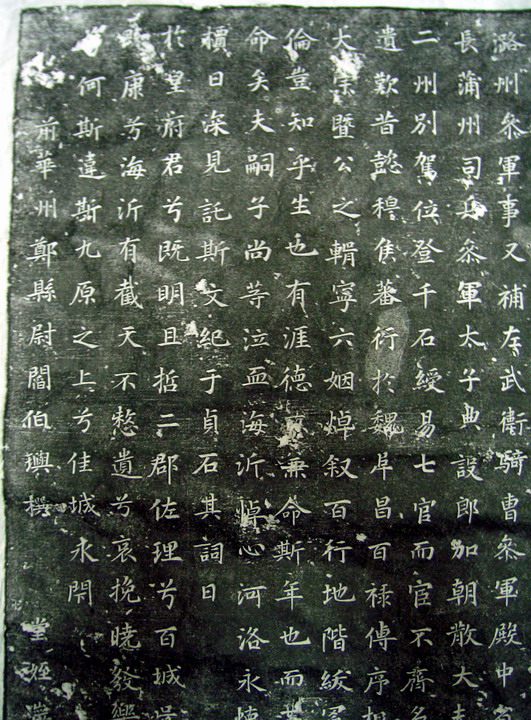 潞州叅軍事又補左武衛騎曹叅軍殿中
長蒲州司兵叅軍太子典設郎加朝散大夫
二州別駕位登千石綬易七官而宦不齊名
遺歎昔懿穆侯蕃衍於魏卓昌百祿傳序
大宗暨公之輯寧六姻焯叙百行地階紱冕
倫豈知乎生也有涯德兼命斯年也而
命矣夫嗣子尚等泣血海沂悼心河洛永
櫝日深見託斯文紀于貞石其詞曰
於皇府君兮旣明且哲二郡佐理兮百城
康兮海沂有截天不憗遺兮哀挽曉發
何斯違斯九原之上兮佳城永閇
前華州鄭縣尉閻伯璵撰 堂姪